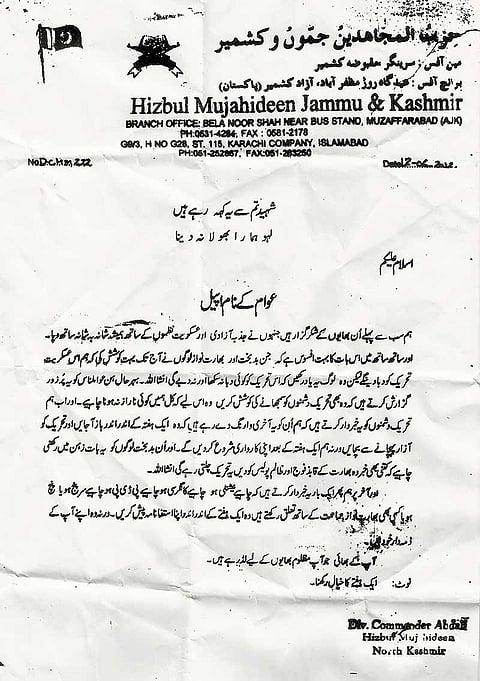 حزب المجاہدین جموں و کشمیر
مین آفس: سرینگر مقبوضہ کشمیر
برانچ آفس: عیدگاہ روڑ مظفر آباد، آزاد کشمیر (پاکستان)
Hizbul Mujahideen Jammu & Kashmir
BRANCH OFFICE: BELA NOOR SHAH NEAR BUS STAND, MUZAFFARABAD (AJK)
PH:0531-4284, FAX : 0581-2178
G9/3, H NO G28, ST. 115, KARACHI COMPANY, ISLAMABAD
PH:051-252867, FAX:051-263250
شہید تم سے یہ کہہ رہے ہیں
لہو ہمارا بھولا نہ دینا
اسلام علیکم
عوام کے نام اپیل
ہم سب سے پہلے اُن بھائیوں کے شکر گزار ہیں جنہوں نے جذبہ آزادی اور عسکریت تنظیموں کے ساتھ ہمیشہ شانہ بہ شانہ ساتھ دیا۔
اور ساتھ ساتھ میں اس بات کا بہت افسوس ہے کہ جن بدبخت اور بھارت نواز لوگوں نے آج تک بہت کوشش کی کہ ہم اس عسکریت
تحریک کو دبا دینگے لیکن وہ لوگ یہ یاد رکھیں کہ اس تحریک کو کوئی دبا نہ سکا اور نہ دبے گی انشااللہ۔ بہر حال ہم عوام الناس کو پر زور
گزارش کرتے ہیں کہ وہ بھی تحریک دشمنوں کو سمجھانے کی کوشش کریں وہ اس لیے کہ کل ہمیں کوئی ناراض نہ ہونا چاہے۔ اور اب ہم
تحریک دشمنوں کو یہ خبردار کرتے ہیں کہ ہم اُن کو یہ آخری وارننگ دے رہے ہیں کہ وہ ایک ہفتے کے اندر اندر باز آ جائیں اور تحریک کو
آزار پہچانے سے بچائیں ورنہ ہم ایک ہفتہ کے بعد اپنی کارروائی شروع کر دیں گے۔ اور اُن بدبخت لوگوں کو یہ بات ذہن میں رکھنی
چاہے کہ کتنی بھی خبر وہ بھارت کے قابض فوج اور ظالم پولیس کو دیں یہ تحریک چلتی رہے گی انشااللہ۔
اور آخر پر ہم پھر ایک بار یہ خبردار کرتے ہیں کہ چاہے نیشنلی ہو چاہے کانگرسی ہو چاہے پی ڈی پی ہو چاہے سرپنچ ہو یا پنچ
ہو یا کسی بھی بھارت نواز جماعت کے ساتھ تعلق رکھتے ہیں وہ ایک ہفتے کے اندر اندر اپنا استعفا نامہ پیش کریں۔ ورنہ وہ اپنے آپ کے
ذمہ دار خود ہیں۔
آپ کے بھائی جو آپ مظلوم بھائیوں کے لیے لڑ رہے ہیں۔
نوٹ: ایک ہفتے کا خیال رکھنا۔
Div. Commander
Hizbul Mujahideen
North Kashmir